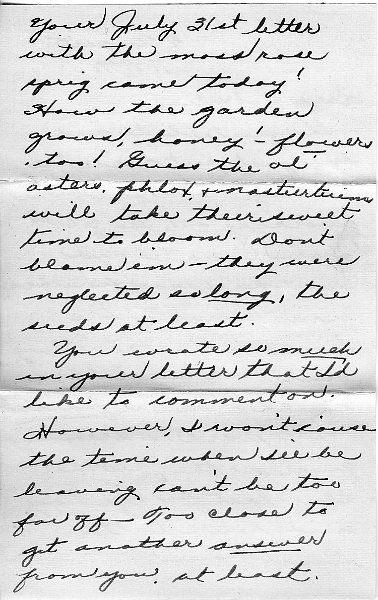 Your July 31st letter
with the moss rose
sprig came today!
How the garden
grows, honey! - flowers
, too! Guess the ol'
asters, phlox, & nasturtiums
will take their sweet
time to bloom. Don't
blame 'em - they were
neglected so long, the
seeds at least.
You wrote so much
in your letter that I'd
like to comment on.
However, I won't 'cause
the time when I'll be
leaving can't be too
far off - Too close to
get another answer
from you, at least.